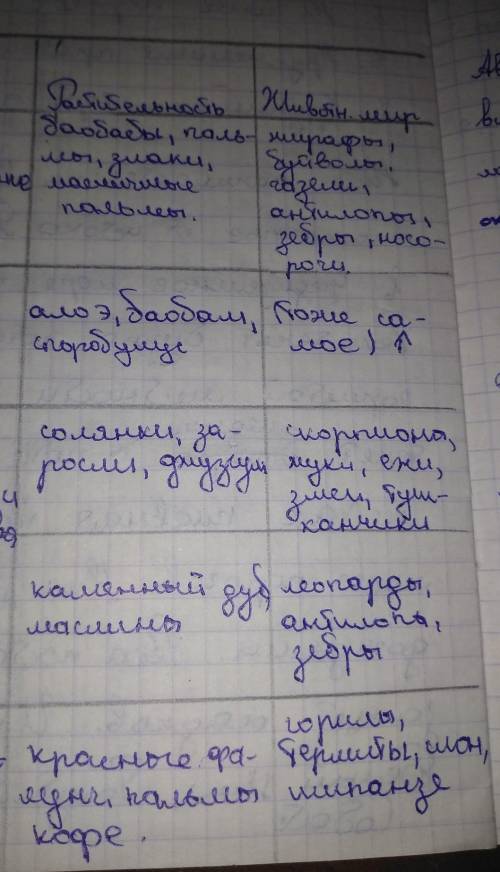 Растительность
баобабы, паль-
мы, злаки,
масличные
пальмы.
Животн. мир
жирафы,
буйволы,
газели,
антилопы,
зебры, носо-
роги.
алоэ, баобам,
споробулус
(тоже са-
мое) ↑
солянки, за-
росли, джузгум
скорпионы,
жуки, ежи,
змеи, туш-
канчики
каменный дуб,
маслины
леопарды,
антилопы,
зебры
красные. фа-
пальмы
кофе.
горилы,
термиты, слон,
шипанзе